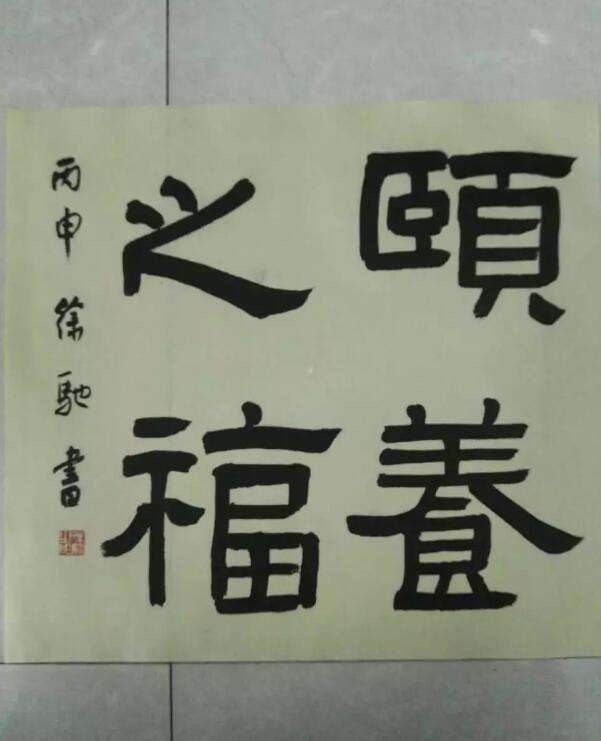 頤養
之福
丙申徐馳書